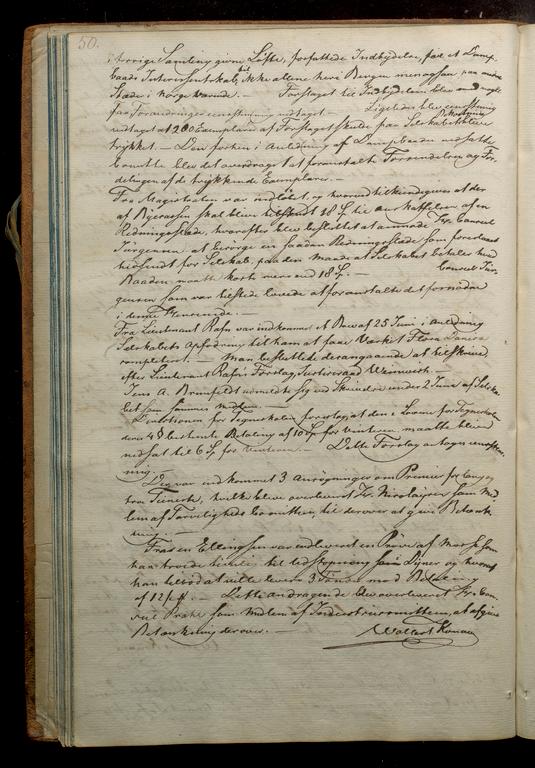 50.
i forrige Samling givne Løfte, forfattede Indbydelse, paa et Damp-
baads Interessentskab, til ikke allene her i Bergen men ogsaa paa andre
Stæder i Norge värende. — Forslaget til Indbydelsen blev med nogle
faa Forandringer eenstemmig antaget. — Ligeledes blev eenstemmig
vedtaget at 200 Exemplarer af Forslaget skulle paa Selskabets Bekostning blive
trykket. — Den forhen i Anledning af Dampbaaden nedsatte
Comitee blev det overdraget at foranstalte Forsendelsen og For-
delingen af de trykkende Exemplarer. —
Fra Magistraten var indløbet, og hvorved tilkiendegives at der
af Byecassen skal blive tilskudt 18 Sp. til Anskaffelsen af en
Redningsslæde, hvorefter blev besluttet at anmode Hr. Consul
Jürgensen at besørge en saadan Redningsslæde som foreslaaet
for Selskab, paa den Maade at Selskabet betaler hvad
Baaden maatte koste mere end 18 Sp. — Consul Jür-
gensen som var tilstede lovede at foranstalte det fornødne
i denne Henseende. —
Fra Lieutenant Rafn var indkommet et Brev af 25 Juni i Anledning
Selskabets Opfordring til ham at faae Värket Flora Danica
completeret. — Man besluttede desangaaende at tilskrive
efter Lieutenant Rafns Forslag, Justitsraad Weinwich. —
Jens A. Brunfeldt udmeldte sig ved Skrivelse under 2 Juni af Selska-
bet som sammes Medlem. —
Directionen for Tegneskolen foreslog at den i Loven for Tegneskolen
dens 4 § bestemte Betaling af 10 Sp for Vinteren maatte blive
nedsat til 6 Sp for Vinteren. — Dette Forslag antoges eenstem-
mig. —
Der var indkommet 3 Ansøgninger om Premier for lang og
troe Tieneste, hvilke bleve overleveret Hr. Nicolaysen som Med-
lem af Tarveligheds Comitteen, til derover at give Betänk-
ning. —
Fra en Ellingsen var indleveret en Prøve af
han troede tienlig til
han tilbød at ville levere 3 Tønder mod Betaling
af 12 — Dette Andragende blev overleveret Hr. Con-
sul Prahl som Medlem af Industriecomitteen, at afgive
Betänkning derover. —
Wollert Konow